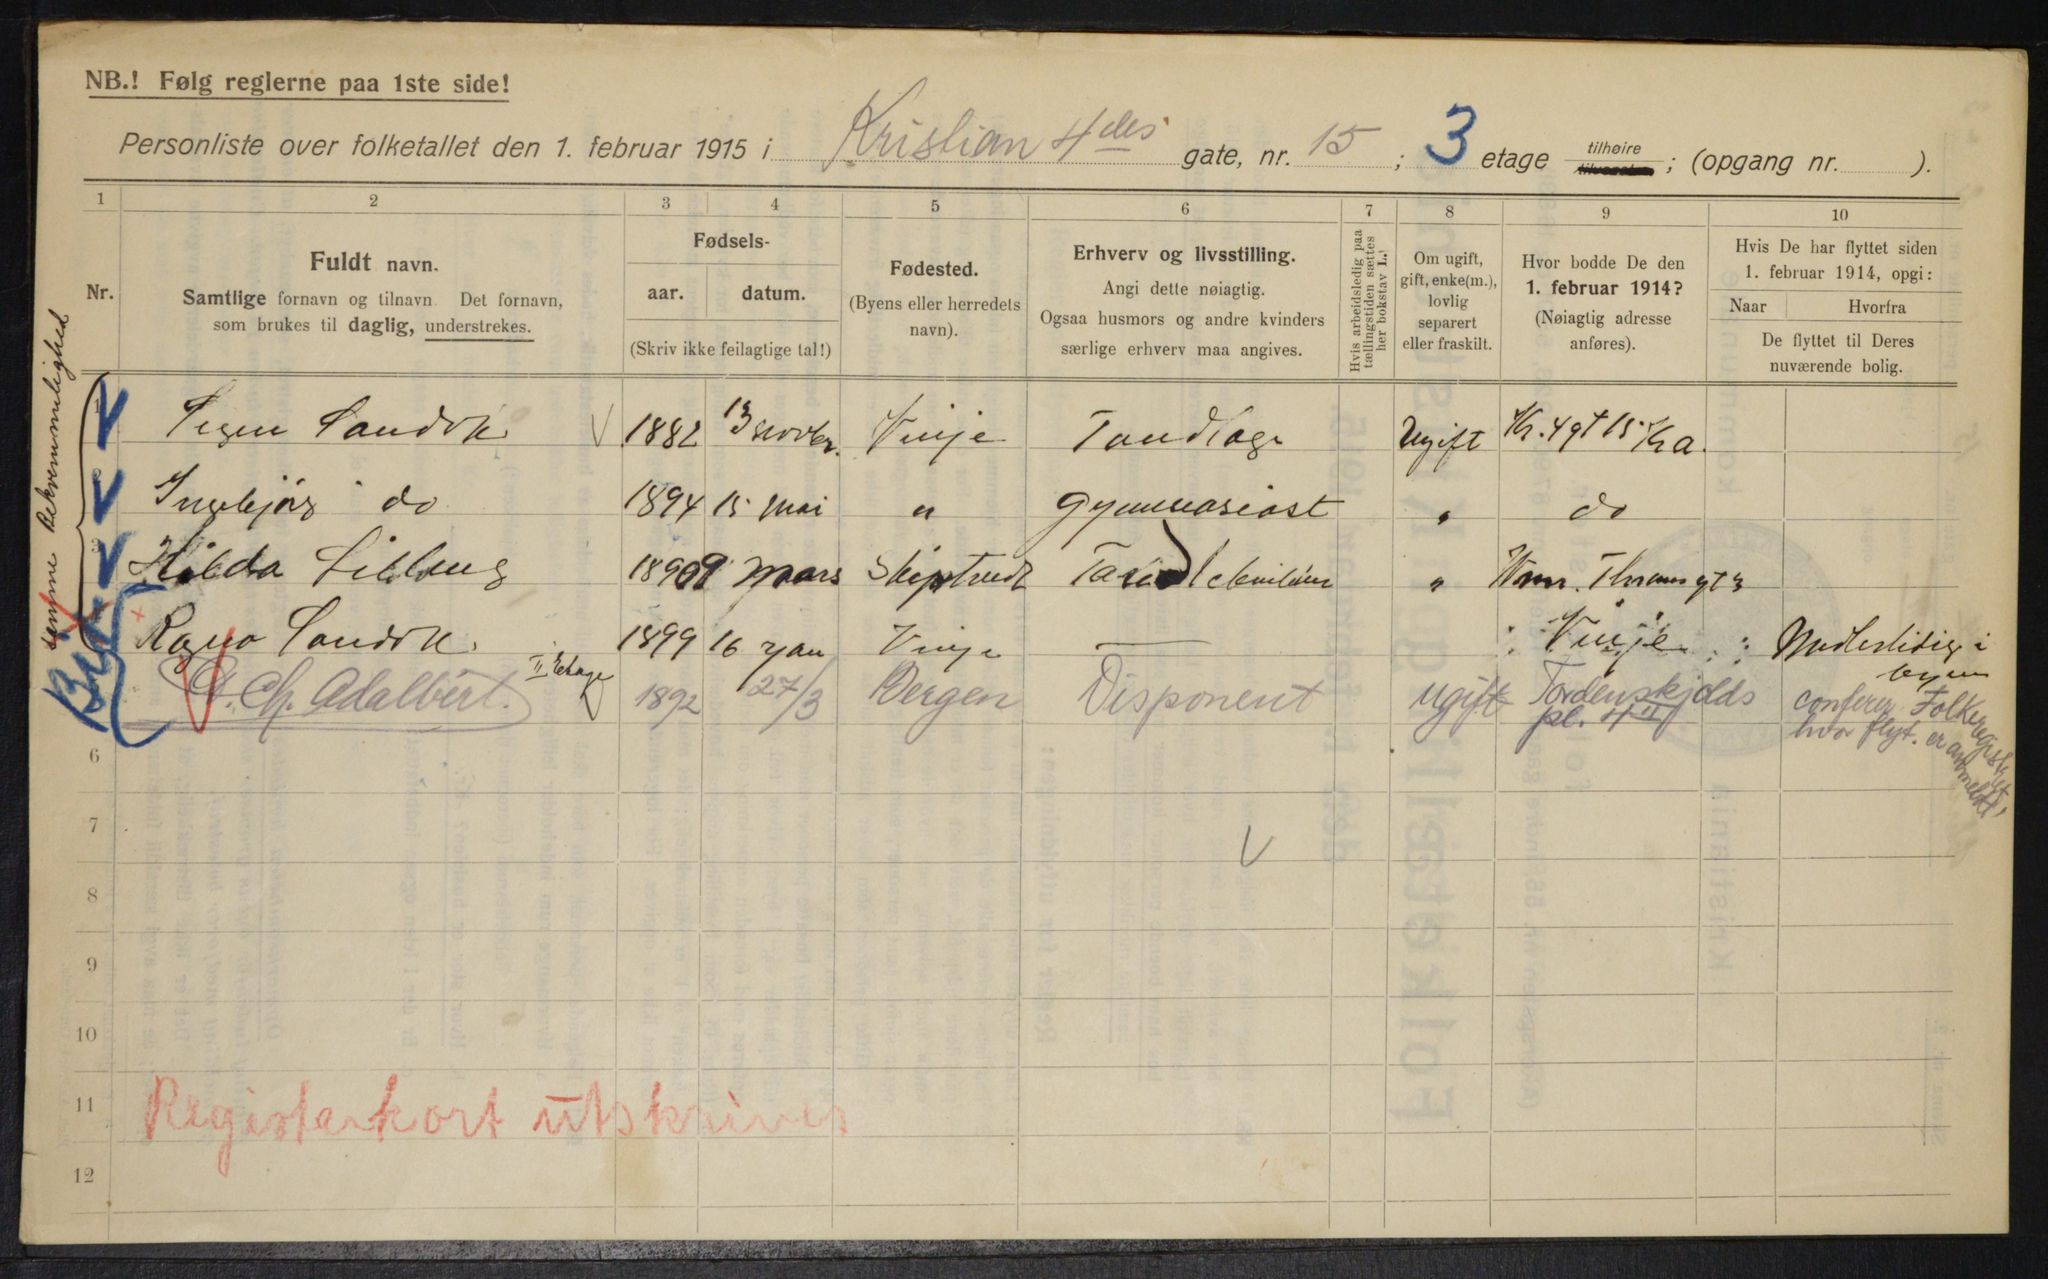 NB.! Følg reglerne paa 1ste side!
Personliste over folketallet den 1. februar 1915 i Kristian 4des gate, nr. 15 ; 3 etage tilhøire ; (opgang nr. ).
1 2 3 4 5 6 7 8 9 10
Nr.
Fuldt navn.
Samtlige fornavn og tilnavn. Det fornavn,
som brukes til daglig, understrekes.
Fødsels-
aar. datum.
(Skriv ikke feilagtige tal!)
Fødested.
(Byens eller herredets
navn).
Erhverv og livsstilling.
Angi dette nøiagtig.
Ogsaa husmors og andre kvinders
særlige erhverv maa angives.
Hvis arbeidsledig paa
tællingstiden sættes
her bokstav L.!
Om ugift,
gift, enke(m.),
lovlig
separert
eller fraskilt.
Hvor bodde De den
1. februar 1914?
(Nøiagtig adresse
anføres).
Hvis De har flyttet siden
1. februar 1914, opgi:
Naar Hvorfra
De flyttet til Deres
nuværende bolig.
samme Bekvemmelighed
1 Sandvik 1882 13 novbr. Vinje Tandlæge Ugift Kr. 4 gt 15. Kra.
2 Ingebjørg do 1894 15 mai " Gymnasiast " do
3 Hilda 1890 9 mars Skiptvedt "
Ragna Sandvik 1899 16 jan Vinje — Vinje Midlertidig i
byen
Ch. Adalbert. II Etage 1892 27/3 Bergen Disponent ugift Tordenskjolds
pl. 4 II conferer Folkeregistret
hvor flyt. er anmeldt
6
7
8
9
10
11
Registerkort utskrives
12